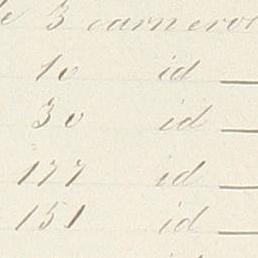 3 carneros
10 id
30 id
177 id
151 id